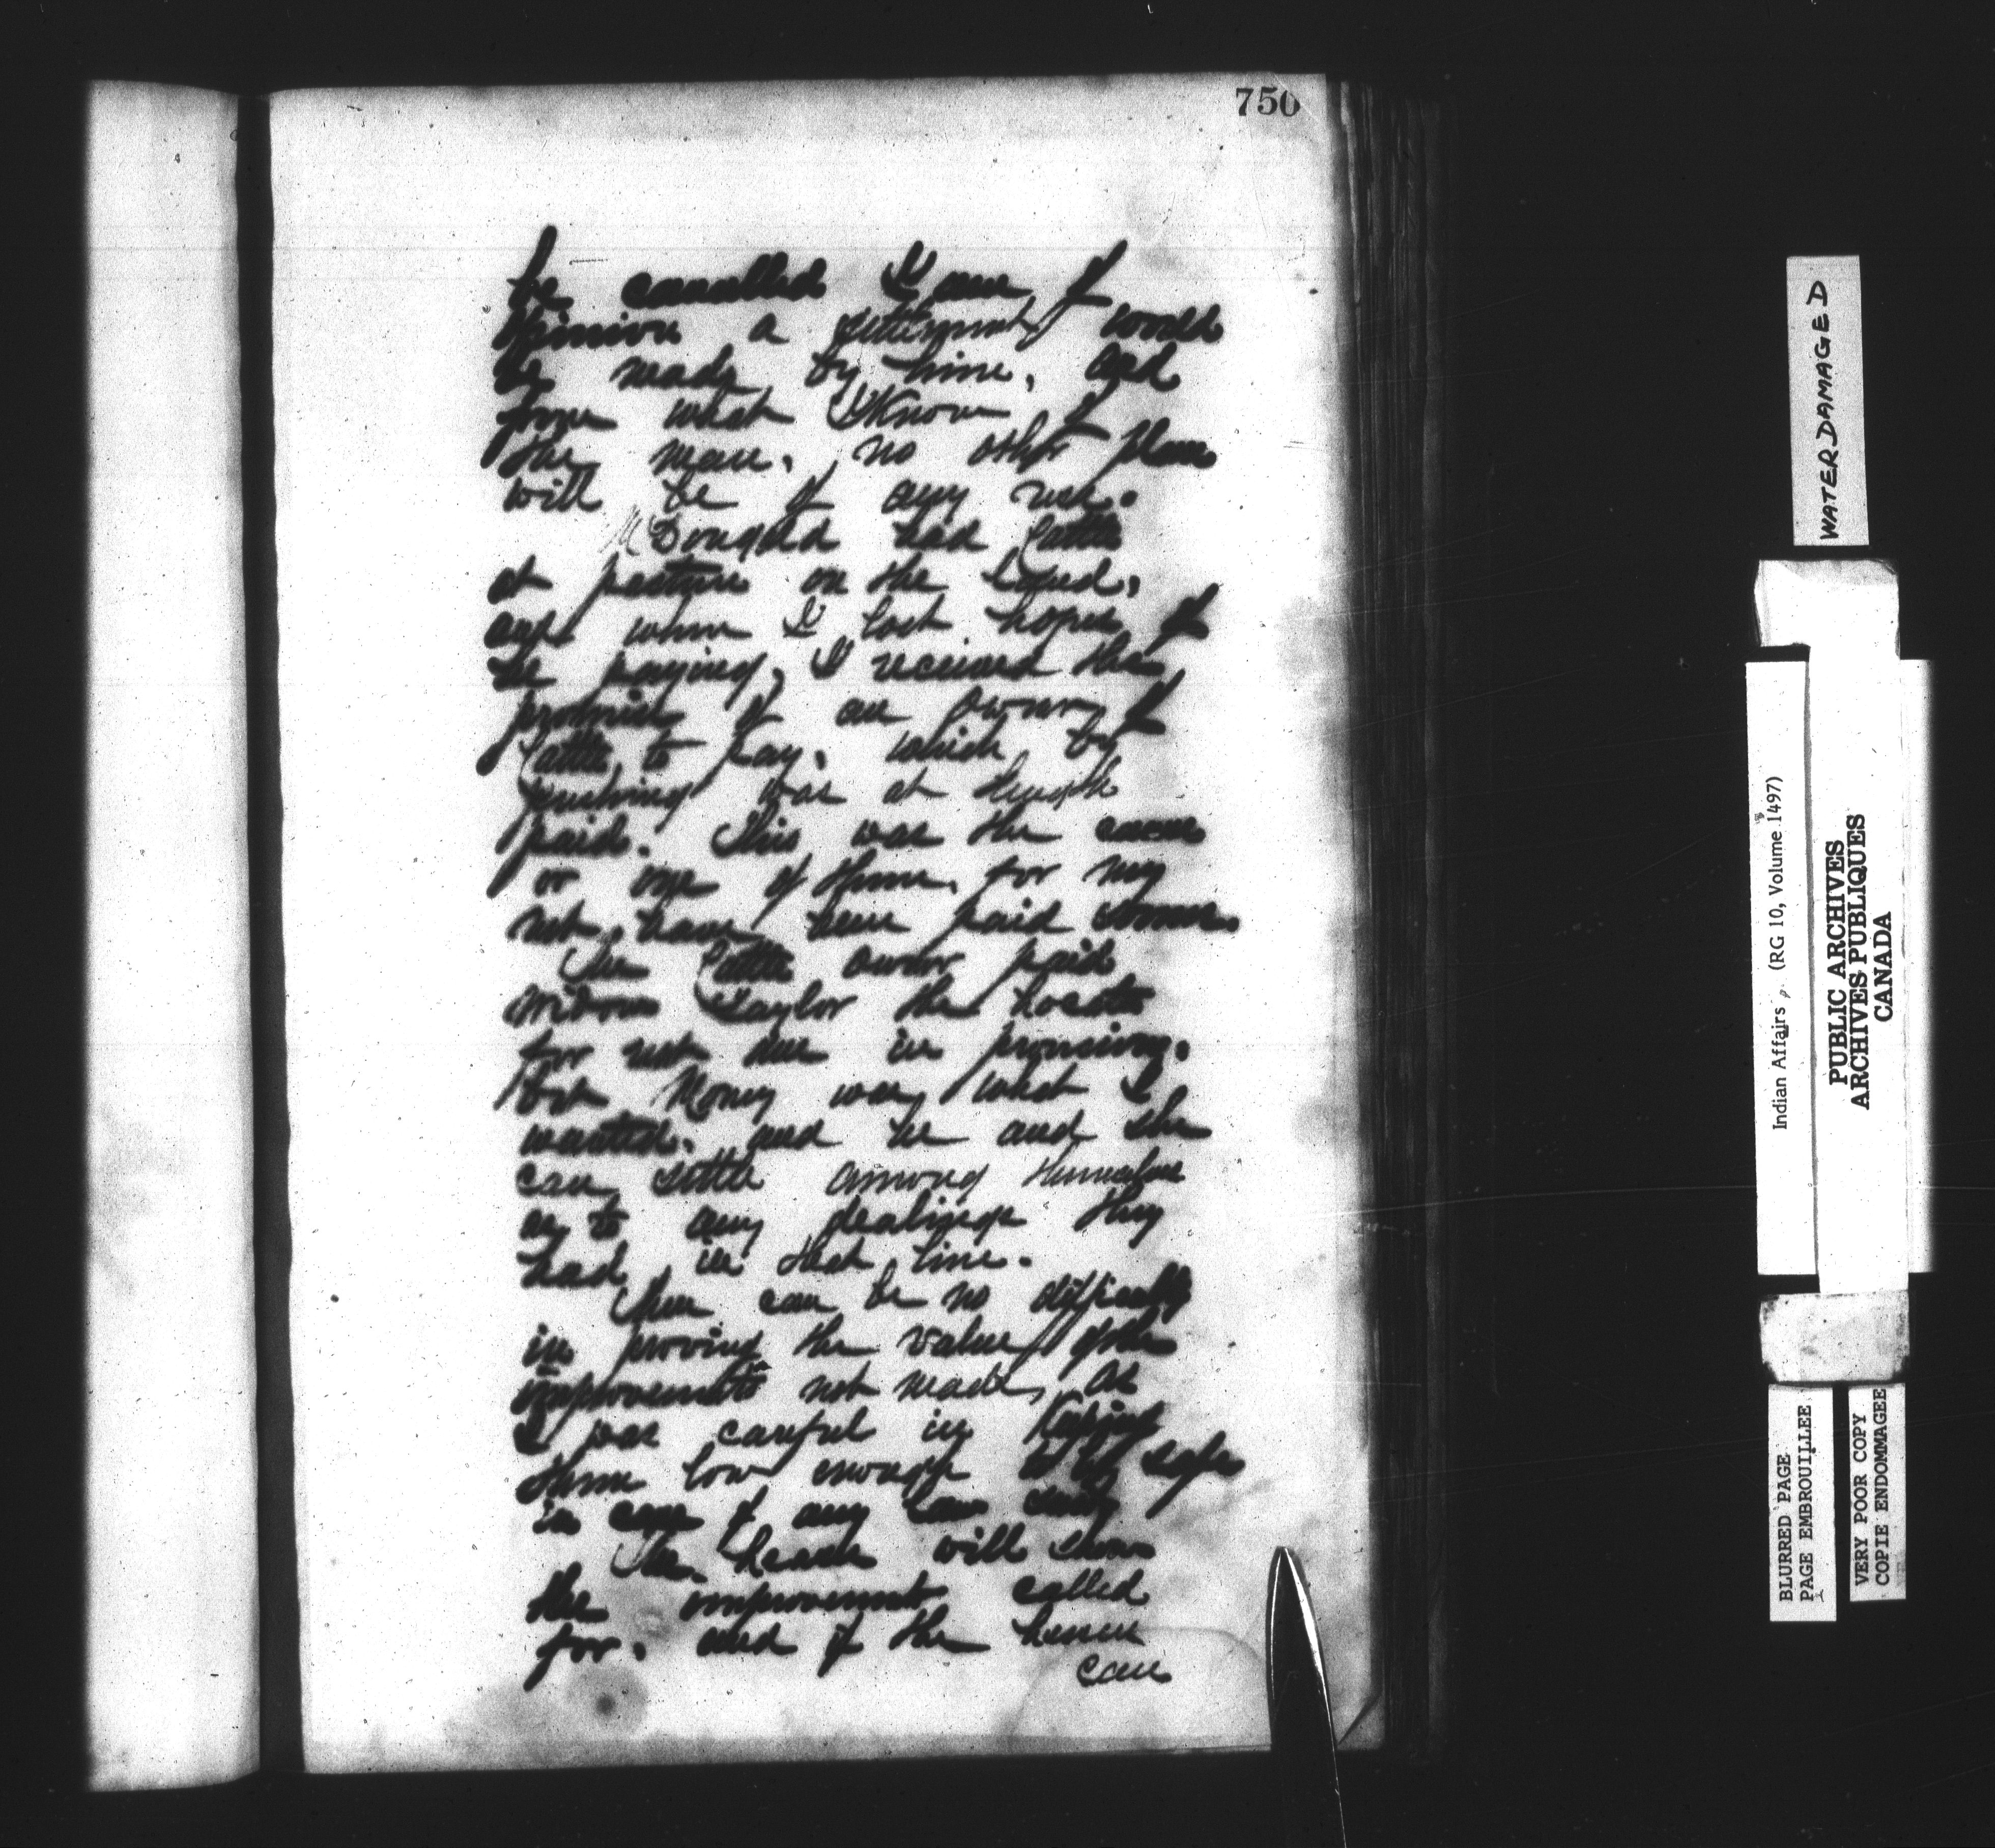 750
be cancelled I am of
opinion a settlement would
be made by him, and
from what I Know of
the man, no other plan
will be of any use.
McDougald had Cattle
at pasture on the land,
and when I lost hopes of
he paying, I received the
promise of an owner of
Cattle to pay, which by
pushing was at length
paid. This was the cause
or one of them, for my
not have been paid sooner.
The Cattle owner paid
widow Taylor the
for not me in
but Money was what I
wanted, and he and she
can settle among themselves
as to any dealings they
had in that line.
There can be no difficulty
in proving the value of the
improvements not made, as
I was careful in Keeping
them low enough to be safe
in case of any law suit
The Lease will show
the improvement called
for, and if the lessee
can
WATER DAMAGED
Indian Affairs (RG 10, Volume 1497)
PUBLIC ARCHIVES
ARCHIVES PUBLIQUES
CANADA
BLURRED PAGE
PAGE EMBROUILLEE
VERY POOR COPY
COPIE ENDOMMAGEE